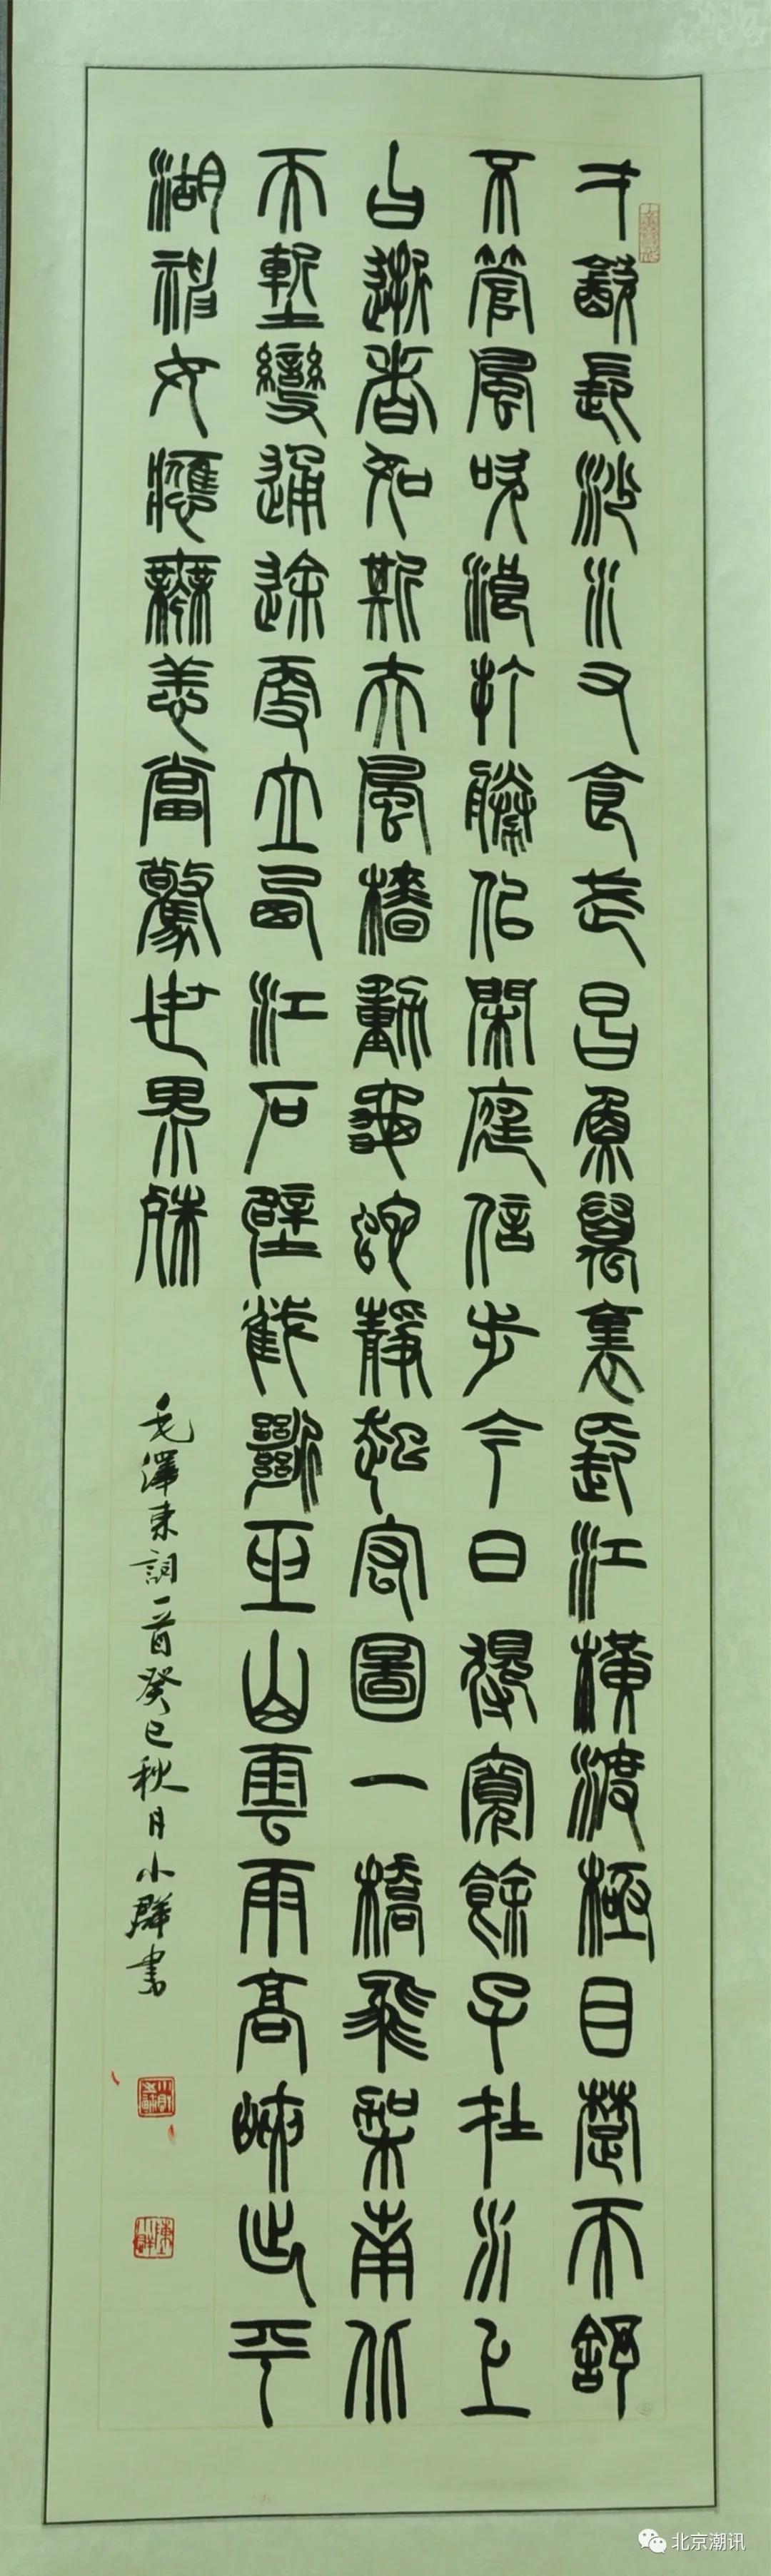 才飲長沙水又食武昌魚萬裏長江橫渡極目楚天舒
不管風吹浪打勝似閑庭信步今日得寬餘子在川上
曰逝者如斯夫風檣動龜蛇靜起宏圖一橋飛架南北
天塹變通途更立西江石壁截斷巫山雲雨高峽出平
湖神女應無恙當驚世界殊
毛澤東詞一首癸巳秋月小群書
北京潮讯